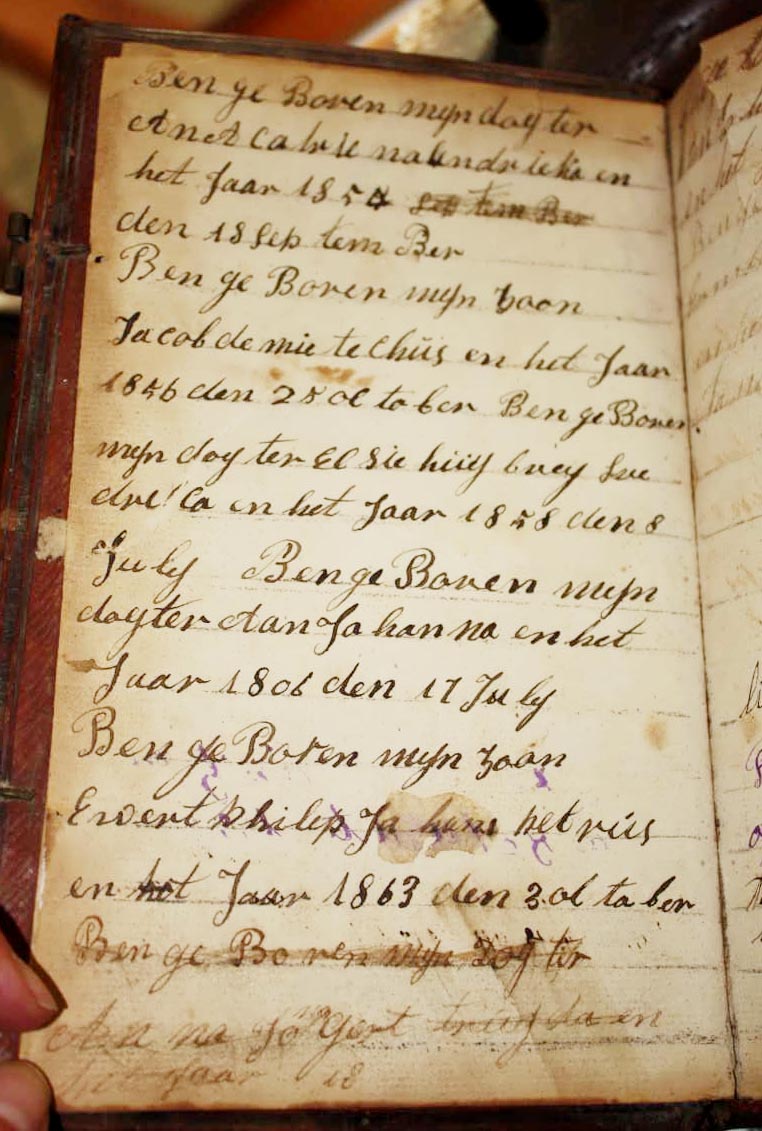 Ben ge Boren mijn dogter
Anet Catrie nalendrieka en
het Jaar 1854 Sep tem Ber
den 18 Sep tem Ber
Ben ge Boren mijn zoon
Jacob de mie techüs en het Jaar
1856 den 25 oc to ber Ben ge Boren
mijn dog ter El sie
en het Jaar 1858 den 8
July Ben ge Boren mijn
dogter Aan Jo han na en het
Jaar 1806 den 17 July
Ben ge Boren mijn zoon
Ewert philip Jo hans petrüs
en het Jaar 1863 den 3 oc to ber
Ben ge Bo ren mijn Dog ter
An na Jo Gert en
het Jaar 18